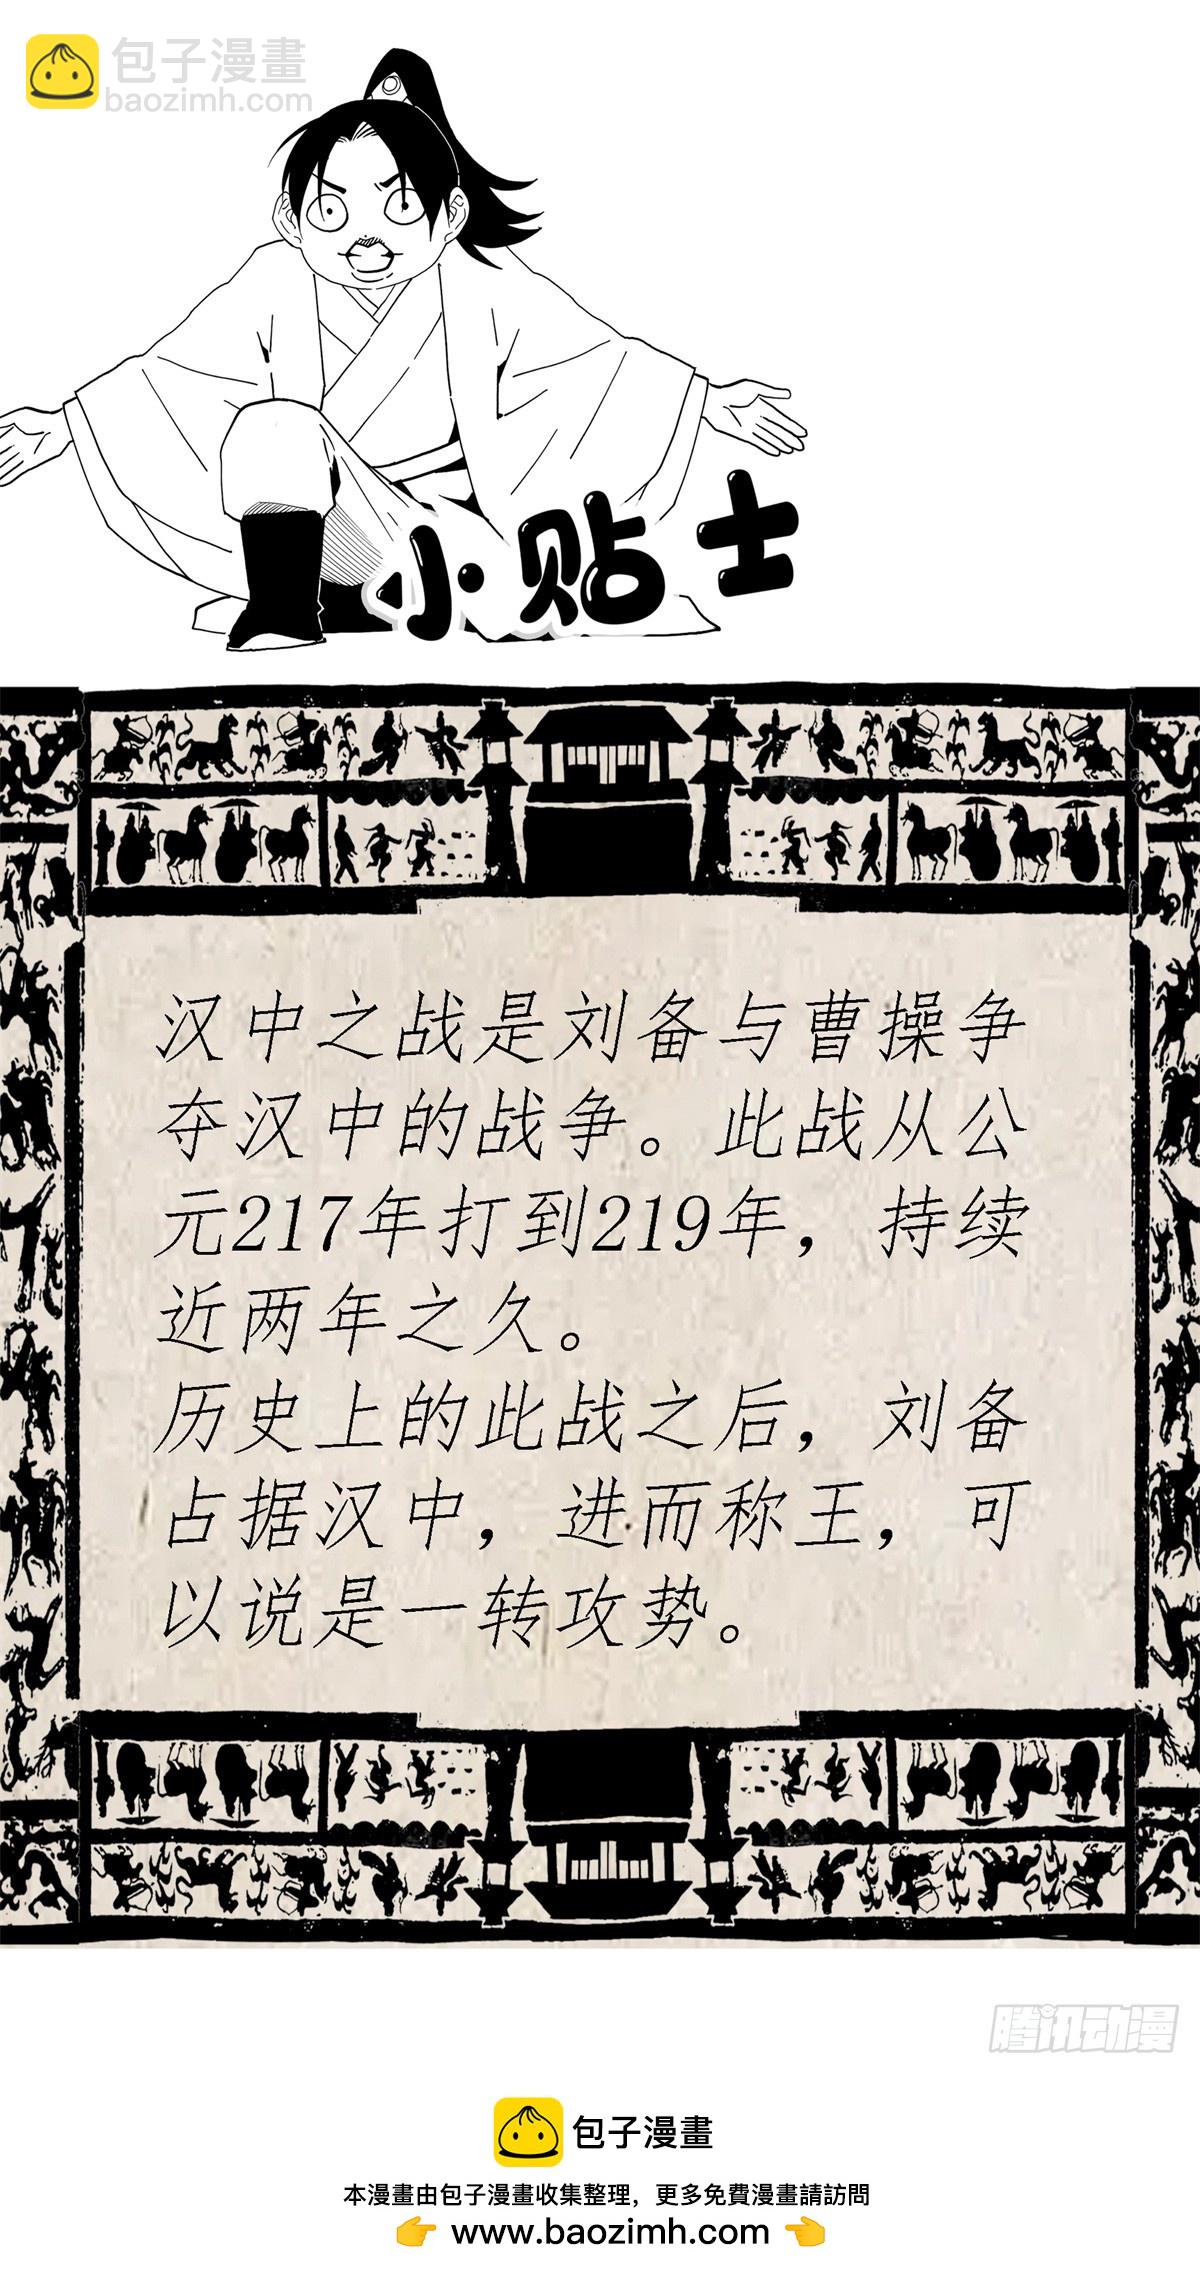 包子漫畫
baozimh.com
小贴士
汉中之战是刘备与曹操争
夺汉中的战争。此战从公
元217年打到219年，持续
近两年之久。
历史上的此战之后，刘备
占据汉中，进而称王，可
以说是一转攻势。
腾讯动漫
包子漫畫
本漫畫由包子漫畫收集整理，更多免費漫畫請訪問
👉 www.baozimh.com 👈